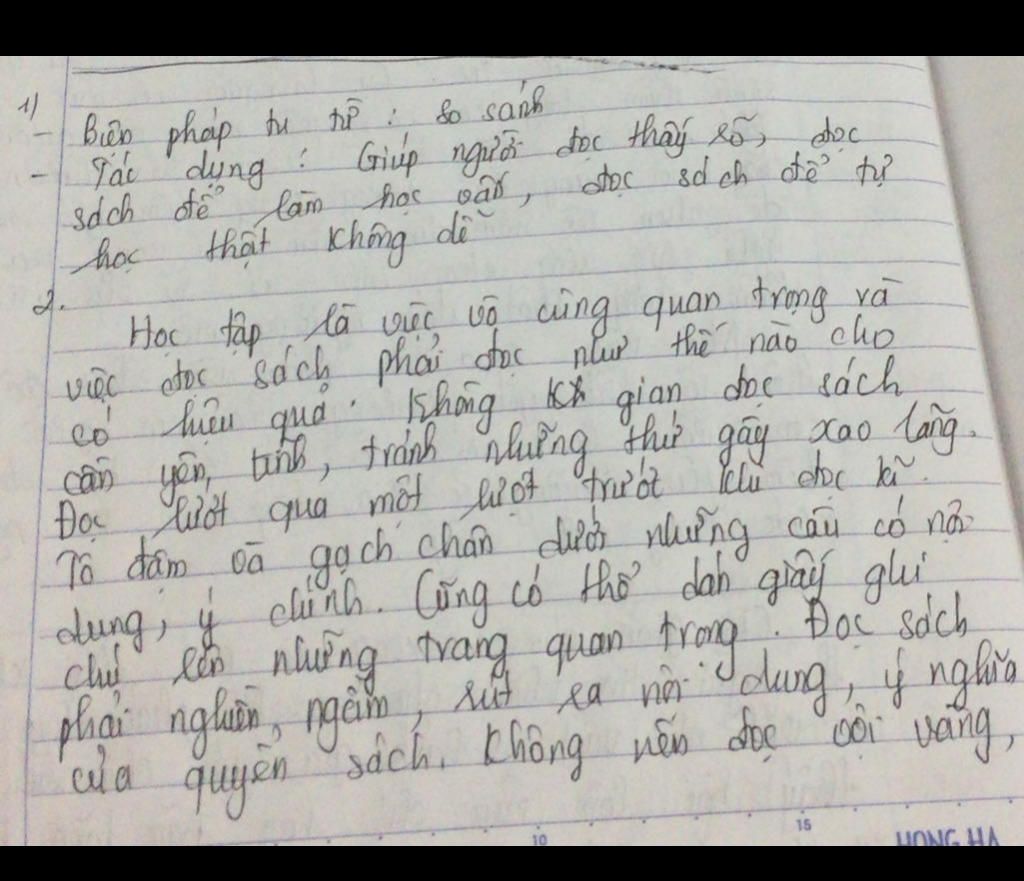 1)
- Biện pháp tu từ : so sánh
- Tác dụng : Giúp người đọc thấy rõ, đọc
sách để làm học vấn, đọc sách để tự
học thật không dễ
2.
Học tập là việc vô cùng quan trọng và
việc đọc sách phải đọc như thế nào cho
có hiệu quả. Không gian đọc sách
cần yên tĩnh, tránh những thứ gây xao lãng.
Đọc lướt qua một lượt trước khi đọc kĩ.
Tô đậm và gạch chân dưới những câu có nội
dung, ý chính. Cũng có thể dán giấy ghi
chú lên những trang quan trọng. Đọc sách
phải nghiền ngẫm, rút ra nội dung, ý nghĩa
của quyển sách. Không nên đọc vội vàng,
10
15
HONG HA